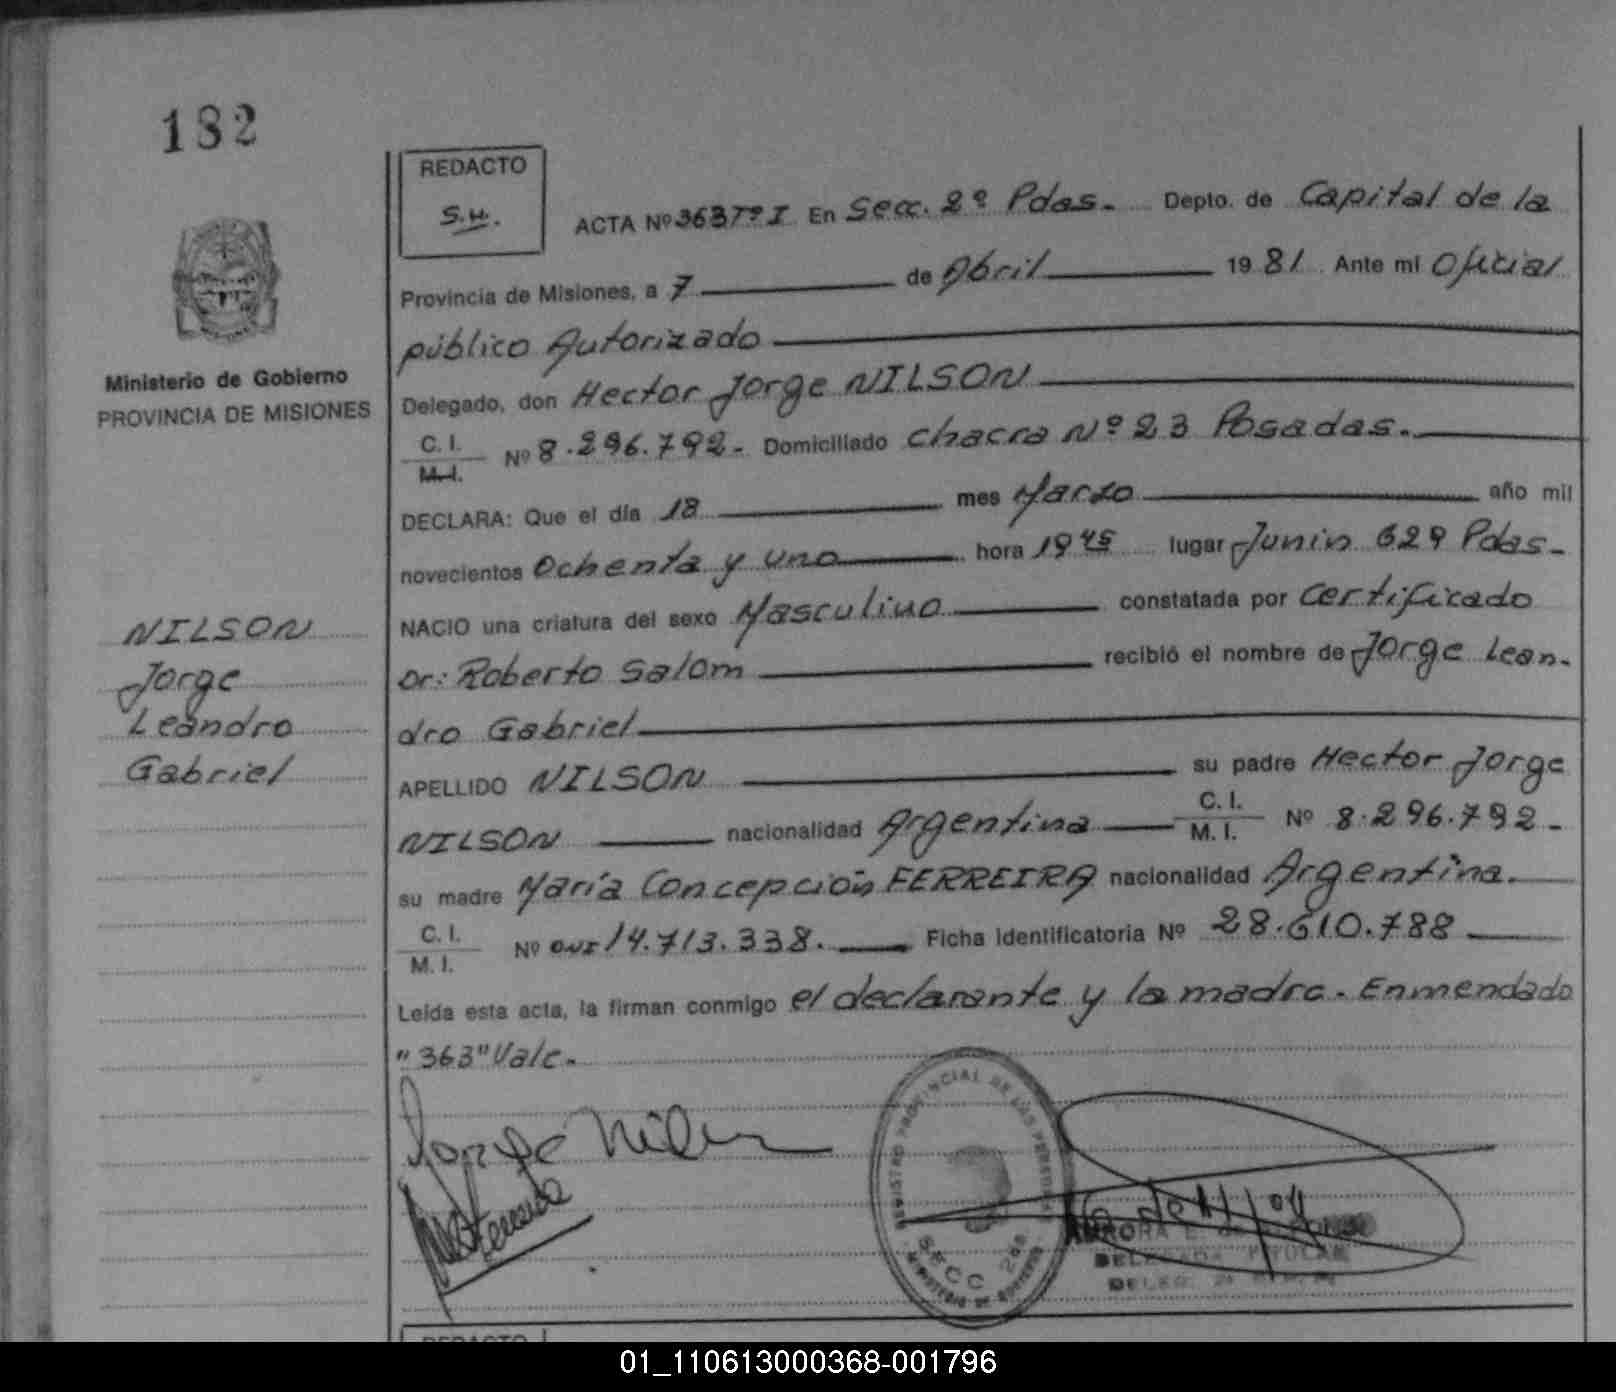 182
REDACTO
S.H.
ACTA Nº 363 Tº I En Secc. 2º Pdas. Depto. de Capital de la
Provincia de Misiones, a 7 de Abril 1981 Ante mi Oficial
público Autorizado
Ministerio de Gobierno
PROVINCIA DE MISIONES
Delegado, don Hector Jorge NILSON
C. I.
M. I. Nº 8.296.792- Domiciliado chacra Nº 23 Posadas.
DECLARA: Que el día 18 mes Marzo año mil
novecientos Ochenta y uno hora 19 45 lugar Junin 629 Pdas-
NACIO una criatura del sexo Masculino constatada por certificado
Dr: Roberto Salom recibió el nombre de Jorge Lean-
dro Gabriel
NILSON
Jorge
Leandro
Gabriel
APELLIDO NILSON su padre Hector Jorge
NILSON nacionalidad Argentina C. I. M. I. Nº 8.296.792-
su madre María Concepción FERREIRA nacionalidad Argentina.
C. I.
M. I. Nº DNI 14.713.338. Ficha identificatoria Nº 28.610.788
Leída esta acta, la firman conmigo el declarante y la madre. Enmendado
"363" Vale.
Jorge Nilson
REGISTRO PROVINCIAL DE LAS PERSONAS
SECC 2da
MINISTERIO DE GOBIERNO
DELEGADA TITULAR
REDACTO
01_110613000368-001796